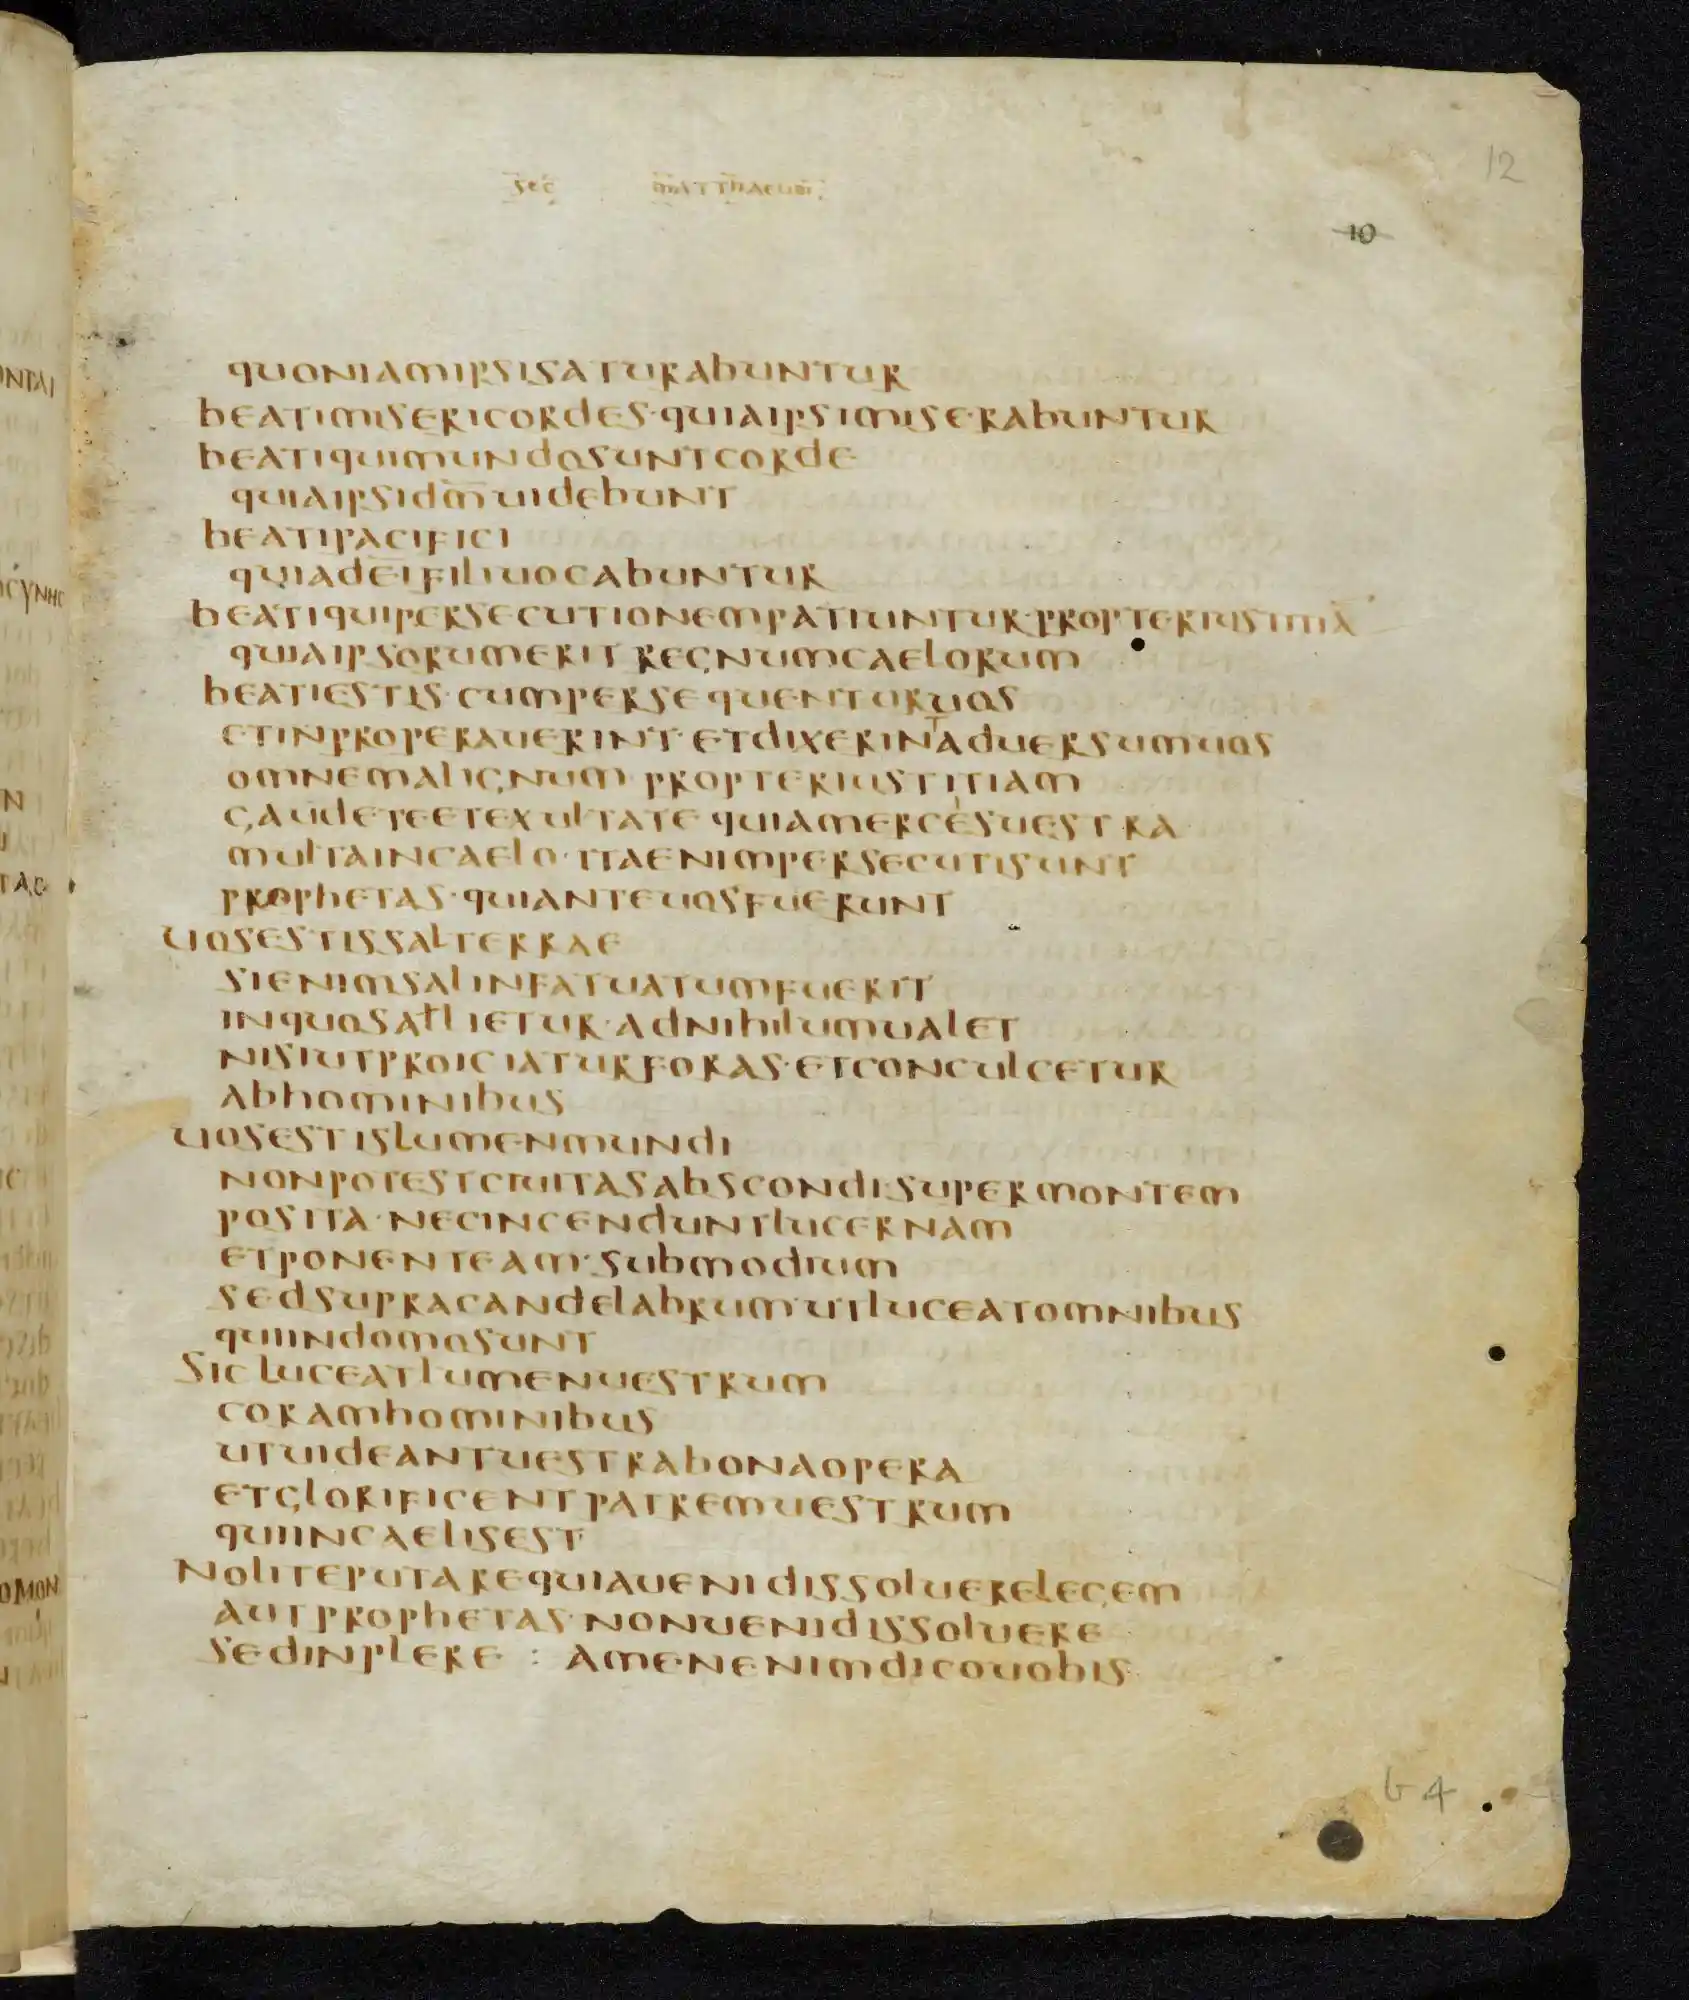 sec̅ m̅atthaeum
12
10
quoniamipsisaturabuntur
beatimisericordes·quiaipsimiserabuntur
beatiquimundosuntcorde
quiaipsidm̅uidebunt
beatipacifici
quiadeifiliuocabuntur
beatiquipersecutionempatiuntur·propteriustitia̅
quiaipsorumerit regnumcaelorum
beatiestis·cumpersequenturuos
etinproperauerint·etdixerintaduersumuos
omnemalignum·propteriustitiam
gaudeteetexultate quiamercesuestra
multaincaelo·itaenimpersecutisunt
prophetas·quianteuosfuerunt
uosestissalterrae
sienimsalinfatuatumfuerit
inquosallietur·adnihilumualet
nisiutproiciaturforas·etconculcetur
abhominibus
uosestislumenmundi
nonpotestciuitasabscondi·supermontem
posita·necincenduntlucernam
etponenteam·submodium
sedsupracandelabrum·utluceatomnibus
quiindomosunt
sic luceatlumenuestrum
coramhominibus
utuideantuestrabonaopera
etglorificentpatremuestrum
quiincaelisest
noliteputarequiauenidissoluerelegem
autprophetas·nonuenidissoluere
sedinplere : amenenimdicouobis
b4